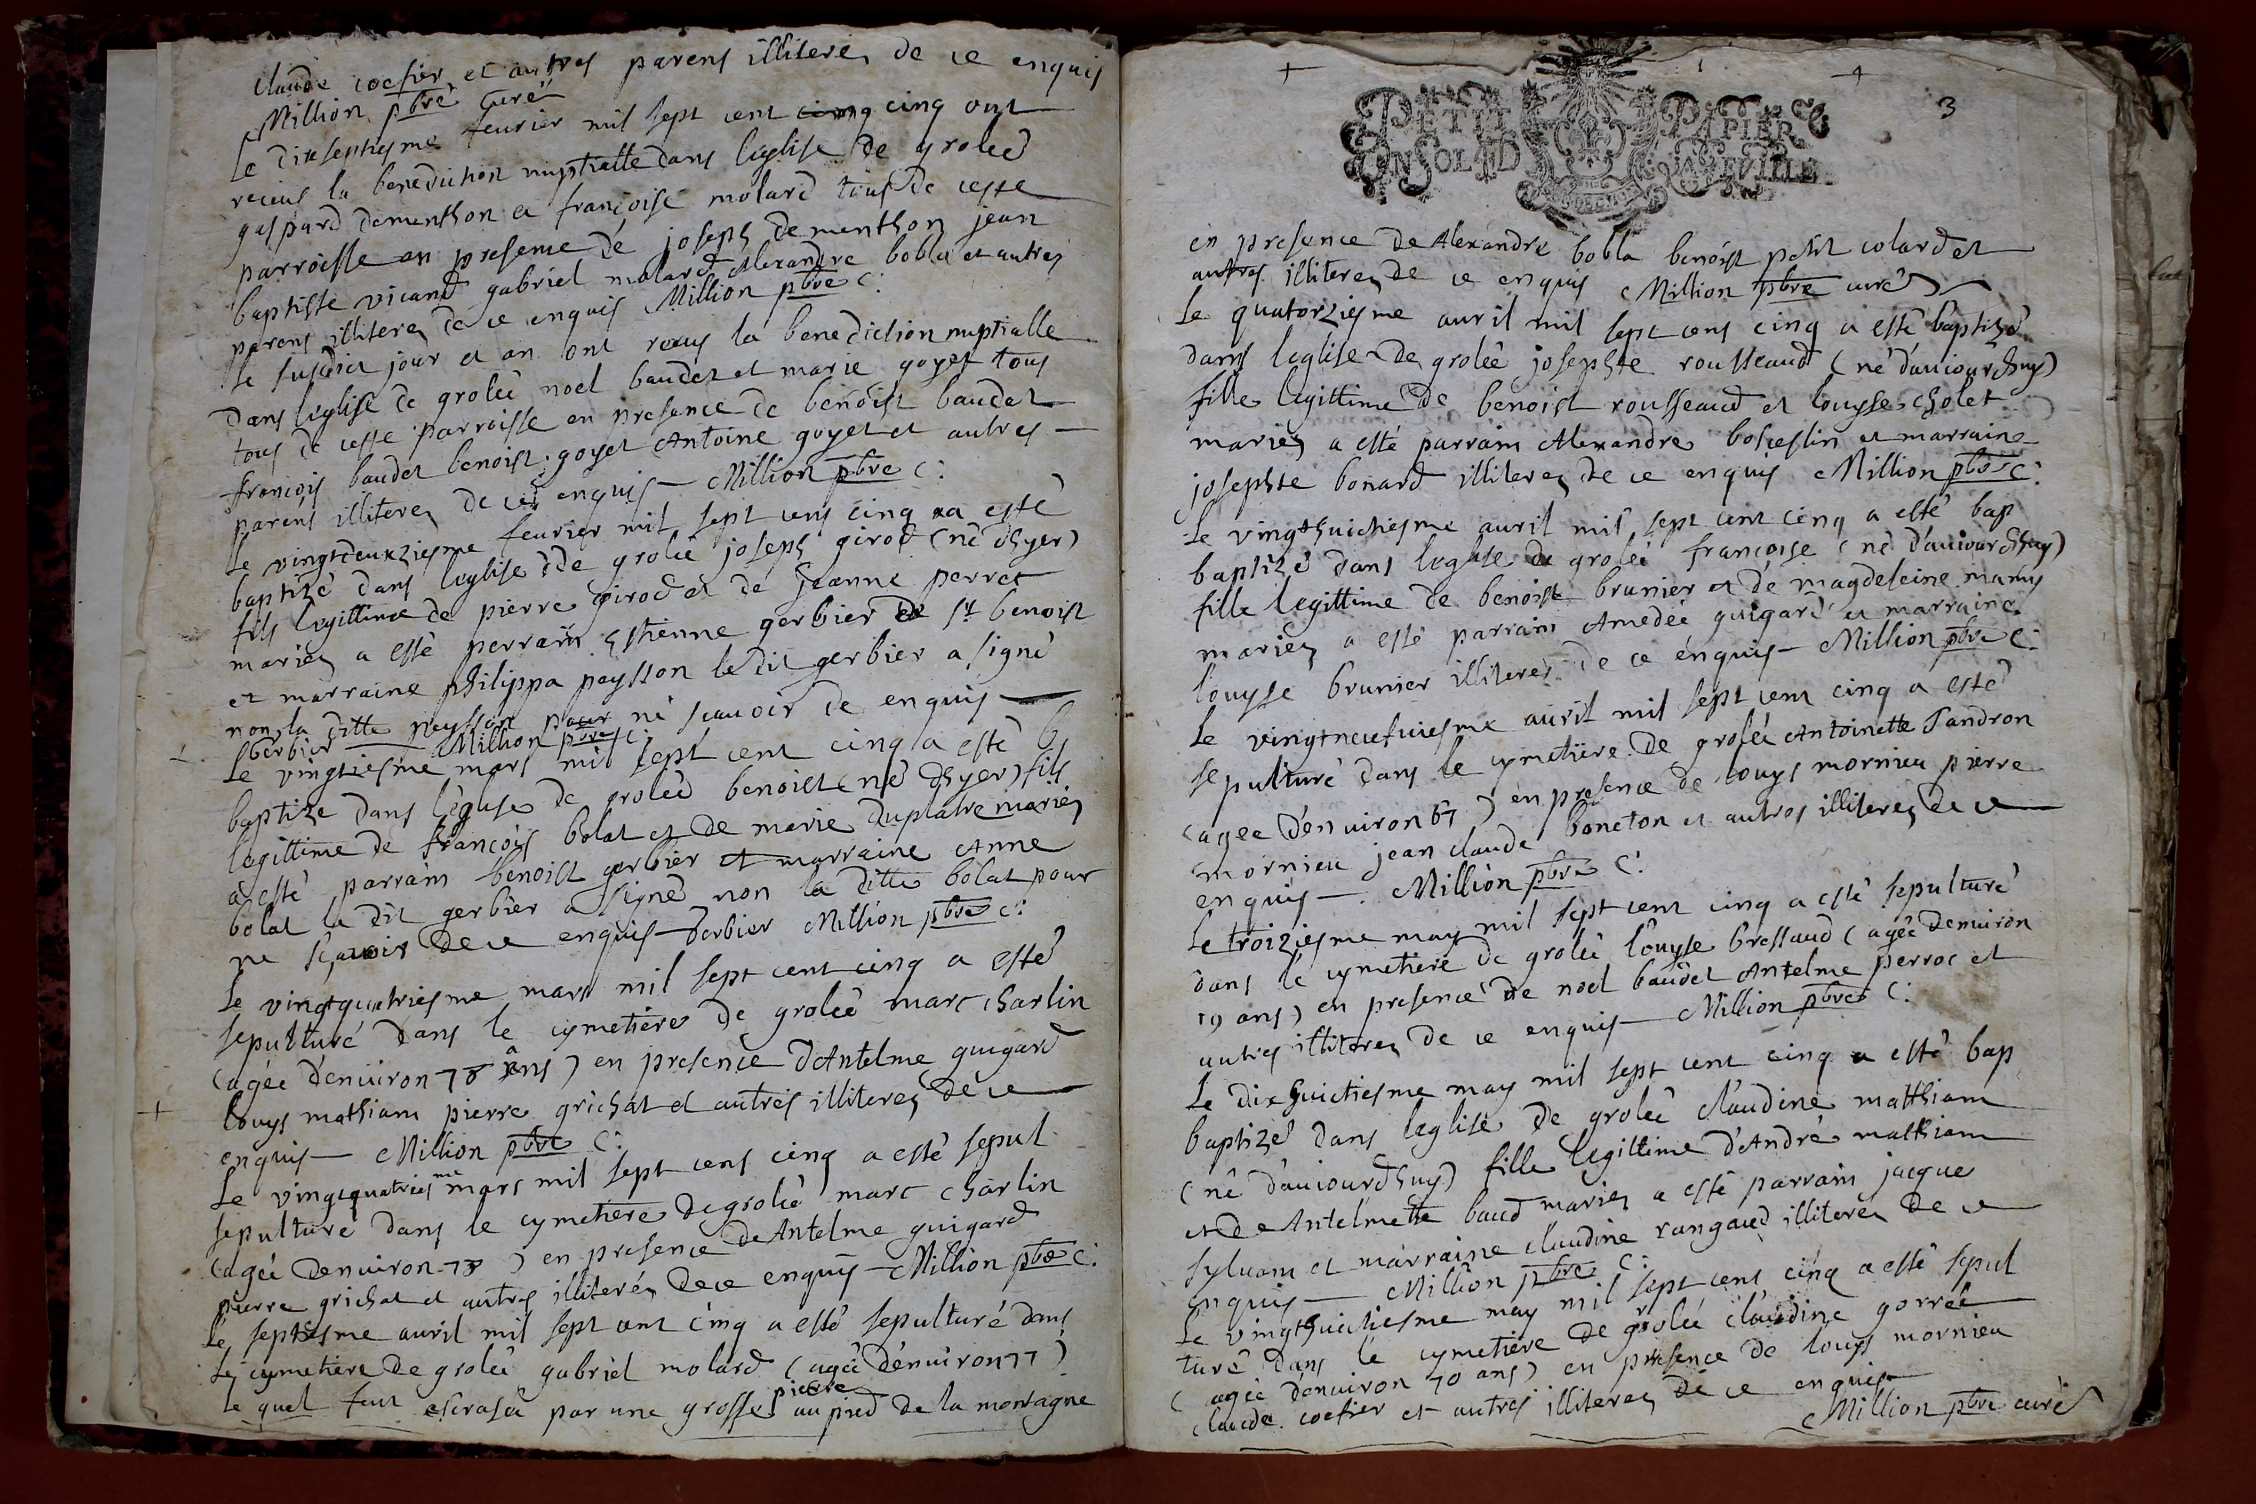 claude coefier et autres parens illiterez de ce enquis
Million pbre curé
Le dixseptiesme feurier mil sept cent cinq cinq ont
receus la benediction nuptialle dans leglise de groleé
gaspard dementhon et françoise molard tous de ceste
parroisse en presence de joseph dementhon jean
baptiste vicand gabriel molard Alexandre bobla et autres
parens illiterez de ce enquis Million pbre c:
le susdict jour et an ont receus la benediction nuptialle
dans leglise de groleé noel baudet et marie goyet tous
tous de ceste parroisse en presence de benoist baudet
françois baudet benoist goyet Antoine goyet et autres
parens illiterez de ce enquis Million pbre c:
Le vingtdeuxziesme feurier mil sept cens cinq a esté
baptizé dans leglise de groleé joseph girod (né dhyer)
fils legittime de pierre girod et de Jeanne perret
mariez a esté perrain Estienne gerbier de St benoist
et marraine philippa paysson le dit gerbier a signé
non la ditte paysson pour ne scauoir de enquis
Gerbier Million pbre c:
Le vingtiesme mars mil sept cent cinq a esté b
baptize dans leglise de groleé benoist (né dhyer) fils
legittime de françois bolat et de marie duplatre mariez
a esté parrain benoist gerbier et marraine Anne
bolat le dit gerbier a signé non la ditte bolat pour
ne sçauoir de ce enquis Gerbier Million pbre c:
Le vingtquatriesme mars mil sept cent cinq a esté
sepulturé dans le cymetiere de groleé marc charlin
(agée denuiron 78 ans) en presence dAntelme guigard
louys mathiam pierre grichat et autres illiterez de ce
enquis Million pbre c:
Le vingtquatriesme mars mil sept cens cinq a esté sepul
sepulturé dans le cymetiere de groleé marc charlin
(agée denuiron 78) en presence de Antelme guigard
pierre grichat et autres illiterez de ce enquis Million pbre c:
Le septiesme auril mil sept cent cinq a esté sepulturé dans
le cymetiere de groleé gabriel molard (agée denuiron 77)
le quel feut escrasée par une grosse pierre au pied de la montagne
3
PETIT PAPIER
UN SOL LD LA FEVILLE
en presence de Alexandre bobla benoist petit colard et
autres illiterez de ce enquis Million pbre curé
Le quatorziesme auril mil sept cens cinq a esté baptizé
dans leglise de groleé josephte rousseaud (né daujourdhuy)
fille legittime de benoist rousseaud et louyse cholet
mariez a esté parrain Alexandre bosieslin et marraine
josephte bonard illiterez de ce enquis Million pbre c:
Le vingthuictiesme auril mil sept cent cinq a esté bap
baptizé dans leglise de groleé françoise (né daujourdhuy)
fille legittime de benoist brunier et de magdeleine mamy
mariez a esté parrain Amedeé guigard et marraine
louyse brunier illiterez de ce enquis Million pbre c:
Le vingtneufuiesme auril mil sept cent cinq a esté
sepulturé dans le cymetiere de groleé Antoinette Pandron
(agée denuiron 67) en presence de louys mornieu pierre
mornieu jean claude boneton et autres illiterez de ce
enquis Million pbre c:
Le troiziesme may mil sept cent cinq a esté sepulturé
dans le cymetiere de groleé louyse bressaud (agée denuiron
19 ans) en presence de noel baudet Antelme perroc et
autres illiterez de ce enquis Million pbre c:
Le dixhuictiesme may mil sept cent cinq a esté bap
baptizé dans leglise de groleé Claudine matthiam
(né daujourdhuy) fille legittime d'André matthiam
et de Antelmette baud mariez a esté parrain jacque
syluam et marraine claudine rangaud illiterez de ce
enquis Million pbre c:
Le vingthuictiesme may mil sept cens cinq a esté sepul
turé dans le cymetiere de groleé claudine gorrel
(agée denuiron 70 ans) en presence de louys mornieu
claude coefier et autres illiterez de ce enquis
Million pbre curé